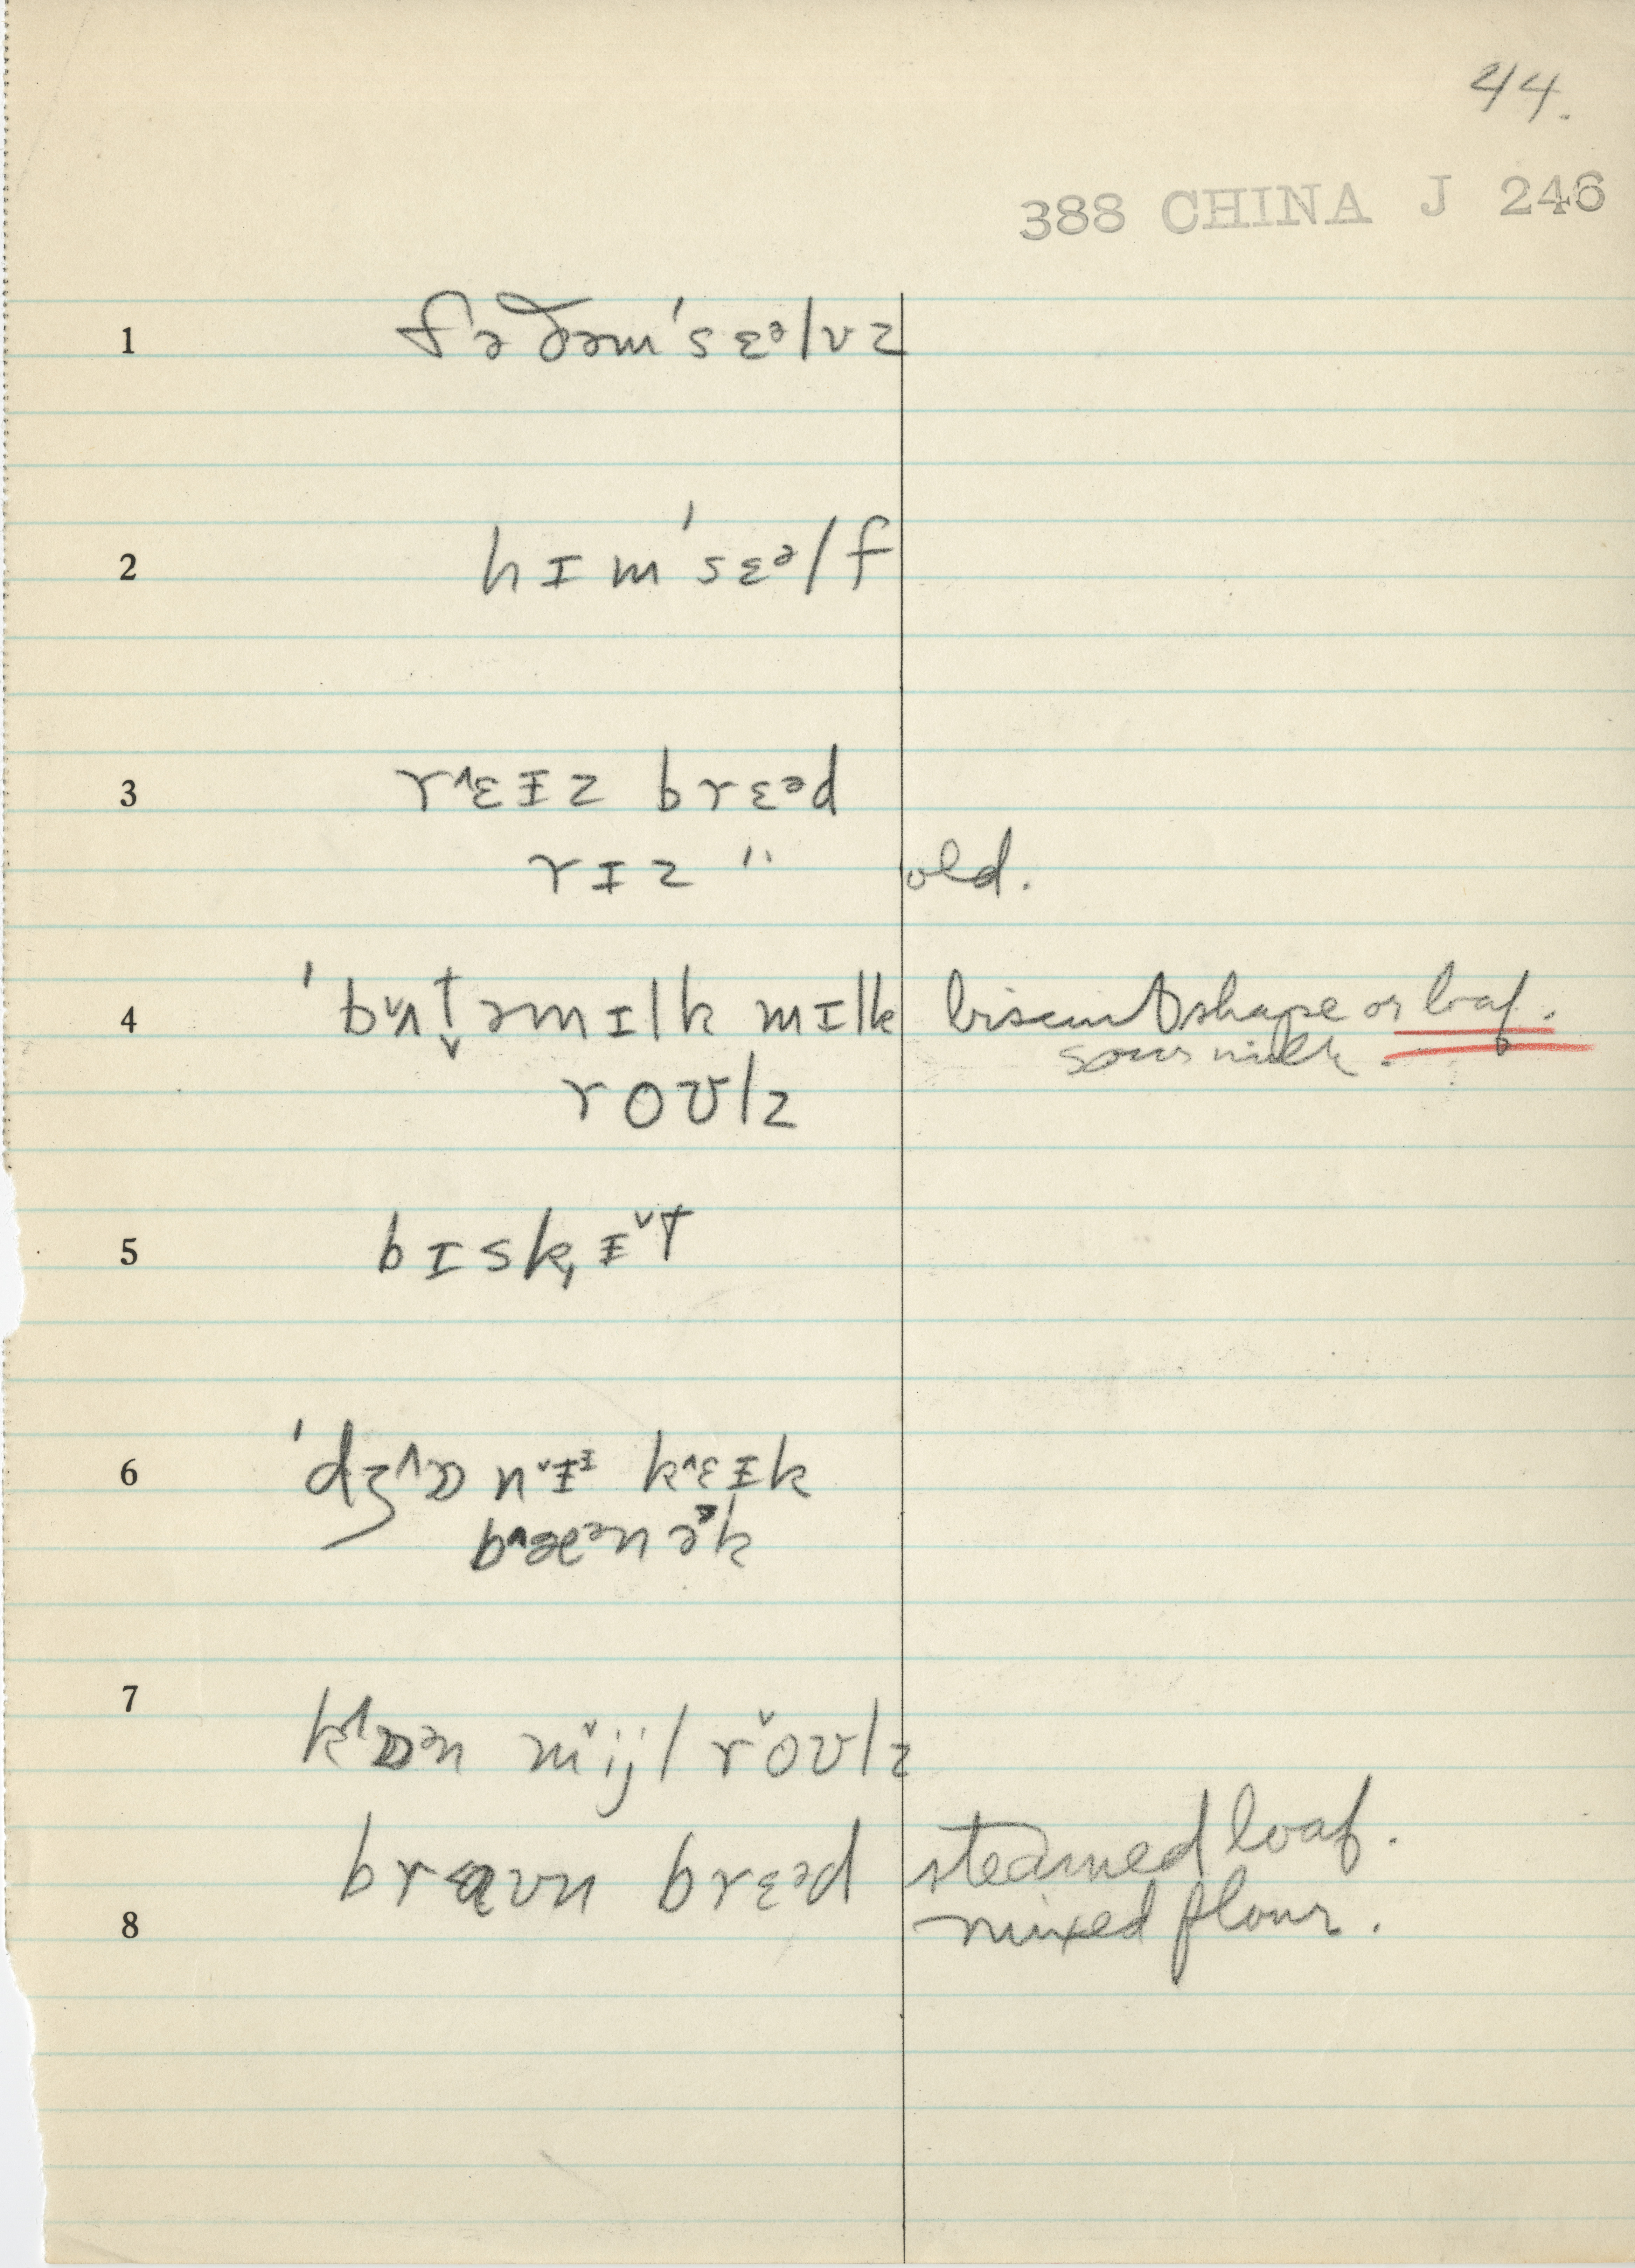 44.
388 CHINA J 246
1 fə ðəm'sɛᵊlvz
2 hɪm'sɛᵊlf
3 r˄ɛɪz brɛᵊd
rɪz " old.
4 'bʌt̬əmɪlk mɪlk biscuit shape or loaf.
sour milk.
roʊlz
5 bɪsk,ɪ˅t
6 'dʒ˄ɒn˅ɪᶦ k˄ɛɪk
b˄æᵊnək
7 k˄ɒᵊn m˅ijl r˅oʊlz
braʊn brɛᵊd steamed loaf.
8 mixed flour.